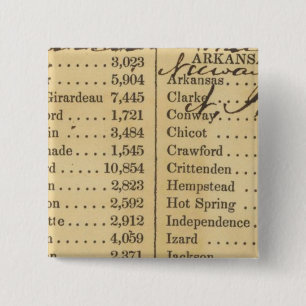 . . . . 3,023
er . . . . . 5,904
Girardeau 7,445
ord . . . . 1,721
in . . . . . 3,484
nade . . . . 1,545
rd . . . . 10,854
n . . . . . . 2,823
on . . . . . 2,592
tte . . . . . 2,912
n . . . . . . 4,059
. . . . . . . 2,371
ARKANSA
Arkansas . . .
Clarke
Conway
Chicot . . . . .
Crawford . . .
Crittenden . .
Hempstead . .
Hot Spring . .
Independence .
Izard . . . . .
Jackson